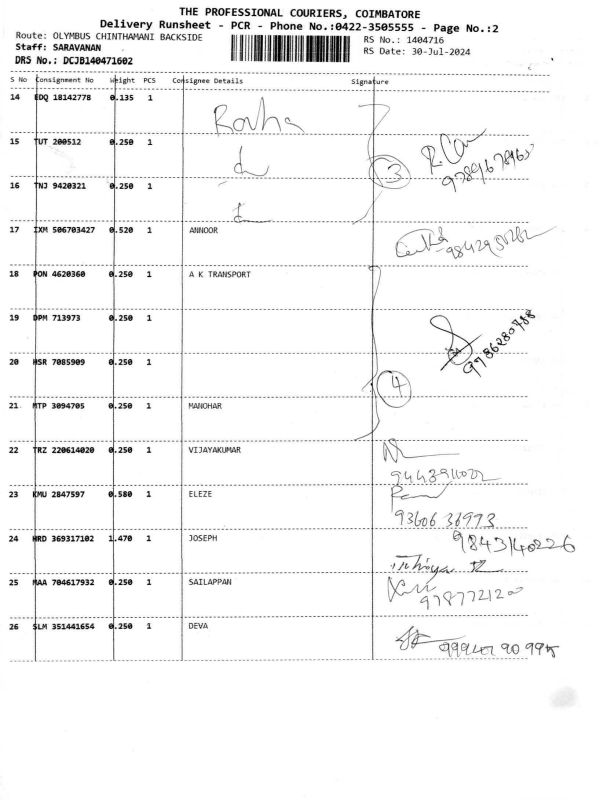 THE PROFESSIONAL COURIERS, COIMBATORE
Delivery Runsheet - PCR - Phone No.:0422-3505555 - Page No.:2
Route: OLYMBUS CHINTHAMANI BACKSIDE RS No.: 1404716
Staff: SARAVANAN RS Date: 30-Jul-2024
DRS No.: DCJB140471602
S No Consignment No Weight PCS Consignee Details Signature
14 EDQ 18142778 0.135 1
15 TUT 200512 0.250 1
3
16 TNJ 9420321 0.250 1
17 IXM 506703427 0.520 1 ANNOOR
18 PON 4620360 0.250 1 A K TRANSPORT
19 DPM 713973 0.250 1
9786280788
20 HSR 7085909 0.250 1
4
21 MTP 3094705 0.250 1 MANOHAR
22 TRZ 220614020 0.250 1 VIJAYAKUMAR
23 KMU 2847597 0.580 1 ELEZE
9360636973
24 HRD 369317102 1.470 1 JOSEPH
9843140226
25 MAA 704617932 0.250 1 SAILAPPAN
26 SLM 351441654 0.250 1 DEVA